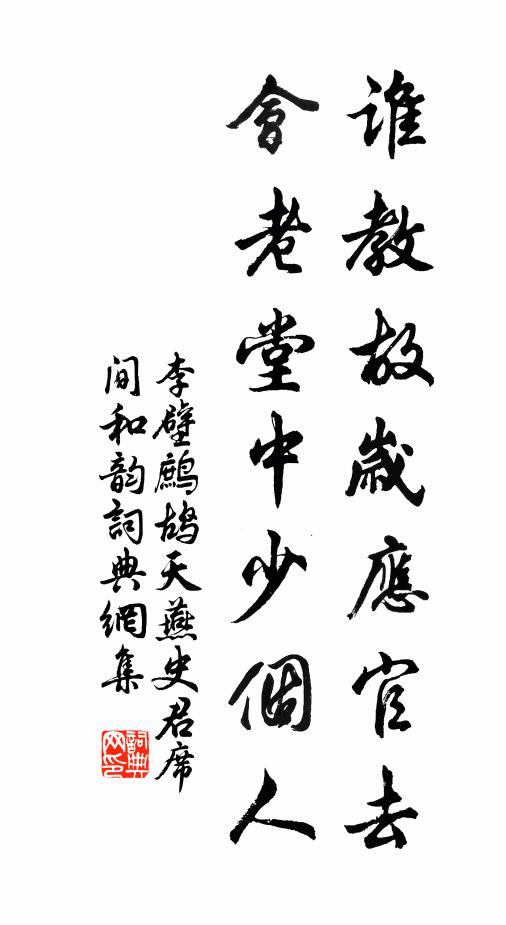 誰教故歲應官去
會老堂中少個人
李壁鷓鴣天燕史君席
間和韵詞典網集
詞典網印